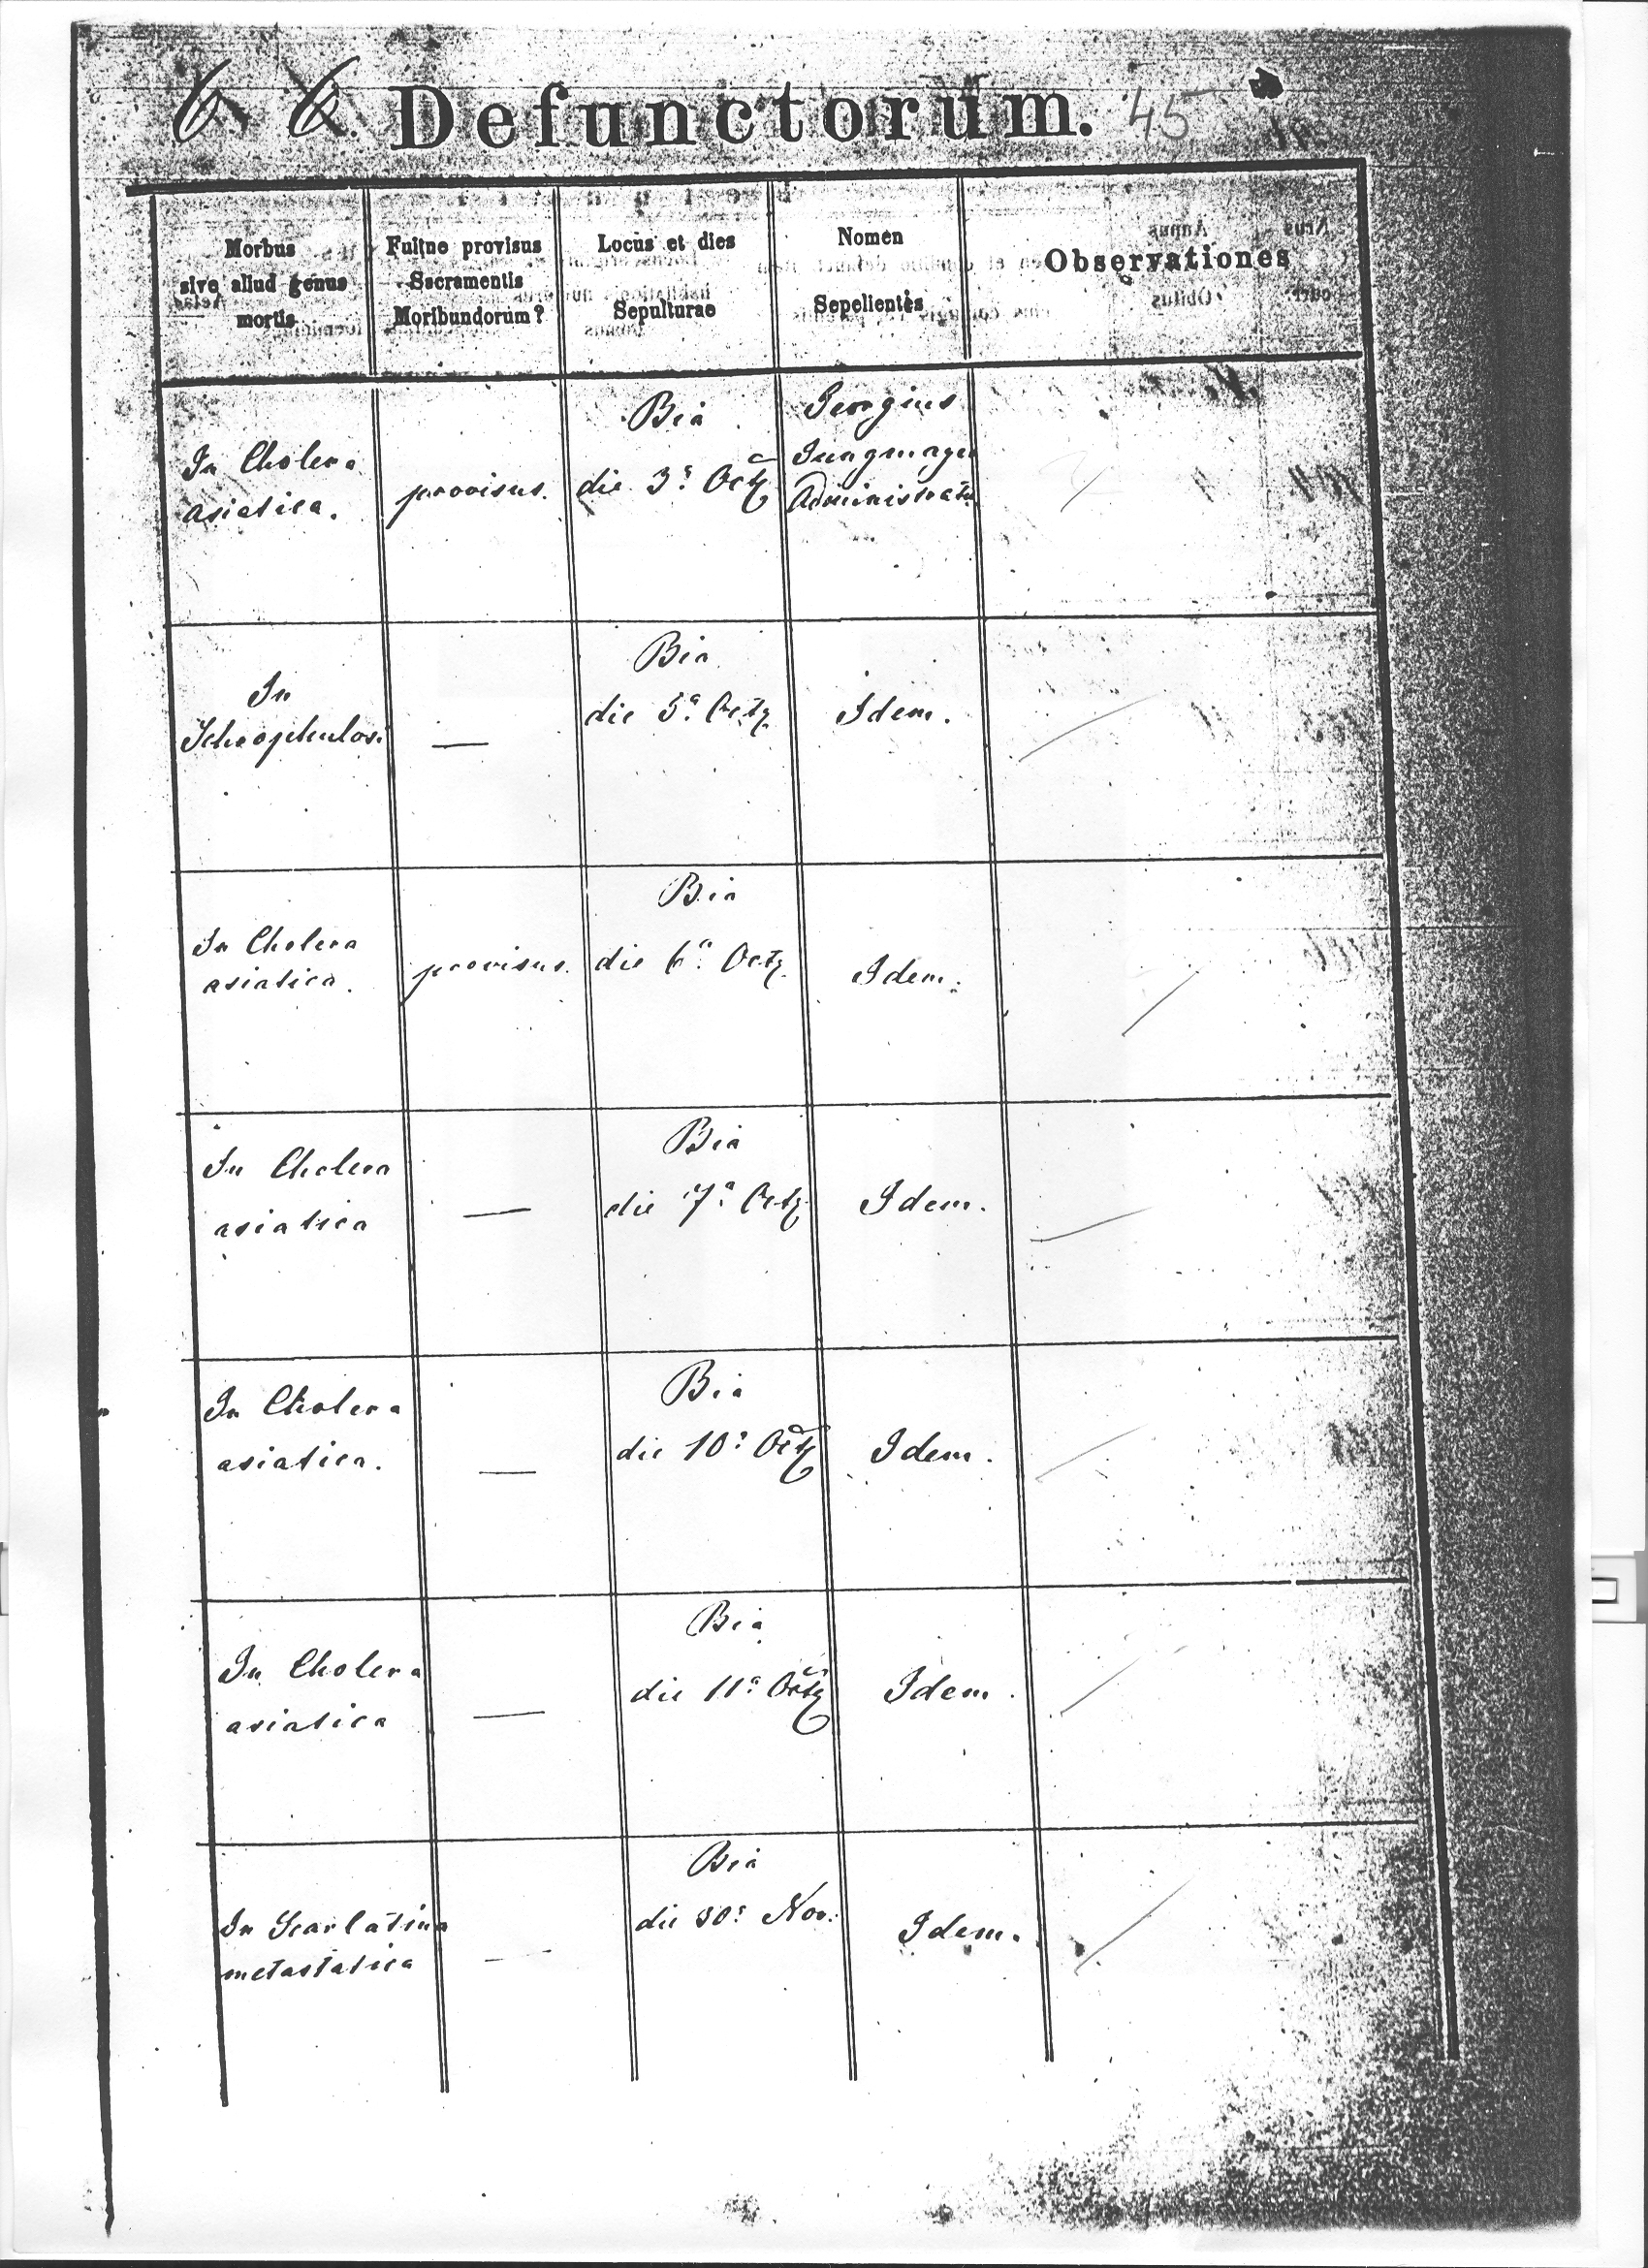 Defunctorum. 45
Morbus
sive aliud genus
mortis
Fuitne provisus
Sacramentis
Moribundorum?
Locus et dies
Sepulturae
Nomen
Sepelientis
Observationes
In Cholera
asiatica.
provisus.
Bia
die 3ª Oct
Georgius
Jungmayer
Administrat
In
Bia
die 5ª Oct
Idem.
In Cholera
asiatica.
provisus.
Bia
die 6ª Oct
Idem.
In Cholera
asiatica
Bia
die 7ª Oct
Idem.
In Cholera
asiatica.
Bia
die 10ª Oct
Idem.
In Cholera
asiatica
Bia
die 11ª Oct
Idem.
In Scarlatina
metastatica
Bia
die 30ª Nov.
Idem.